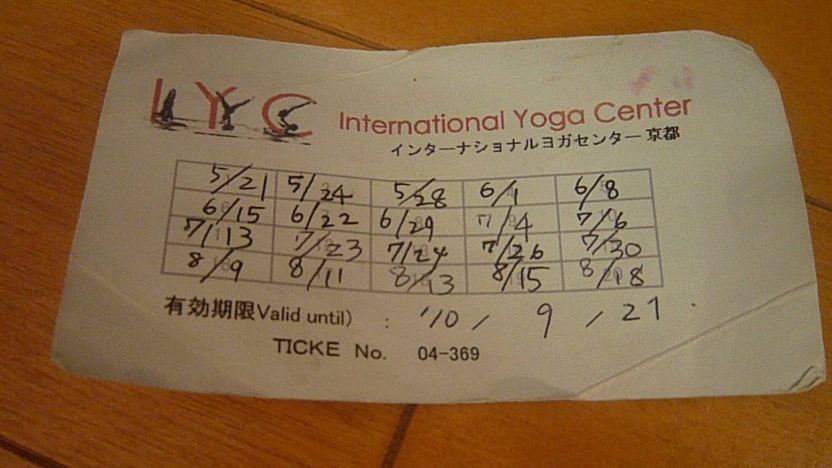 IYC International Yoga Center
インターナショナルヨガセンター 京都
5/21 5/24 5/28 6/1 6/8
6/15 6/22 6/29 7/4 7/6
7/13 7/23 7/24 7/26 7/30
8/9 8/11 8/13 8/15 8/18
有効期限Valid until) : '10 / 9 / 21
TICKE No. 04-369